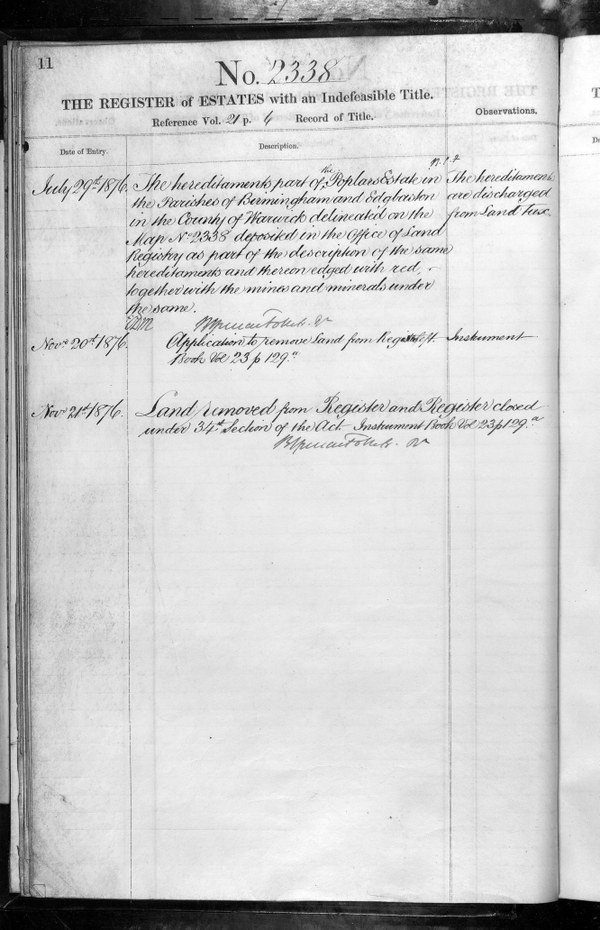 11
No. 2338
THE REGISTER of ESTATES with an Indefeasible Title.
Reference Vol. 21 p. 4 Record of Title.
Observations.
Date of Entry.
Description.
July 29th 1876.
The hereditaments part of the Poplars Estate in
the Parishes of Birmingham and Edgbaston
in the County of Warwick delineated on the
Map No 2338 deposited in the Office of Land
Registry as part of the description of the same
hereditaments and thereon edged with red,
together with the mines and minerals under
the same.
The hereditaments
are discharged
from Land tax.
Novr 20th 1876.
Application to remove Land from Register. Instrument
Book Vol 23 p 129.a
Novr 21st 1876.
Land removed from Register and Register closed
under 34th Section of the Act. Instrument Book Vol 23 p 129.a